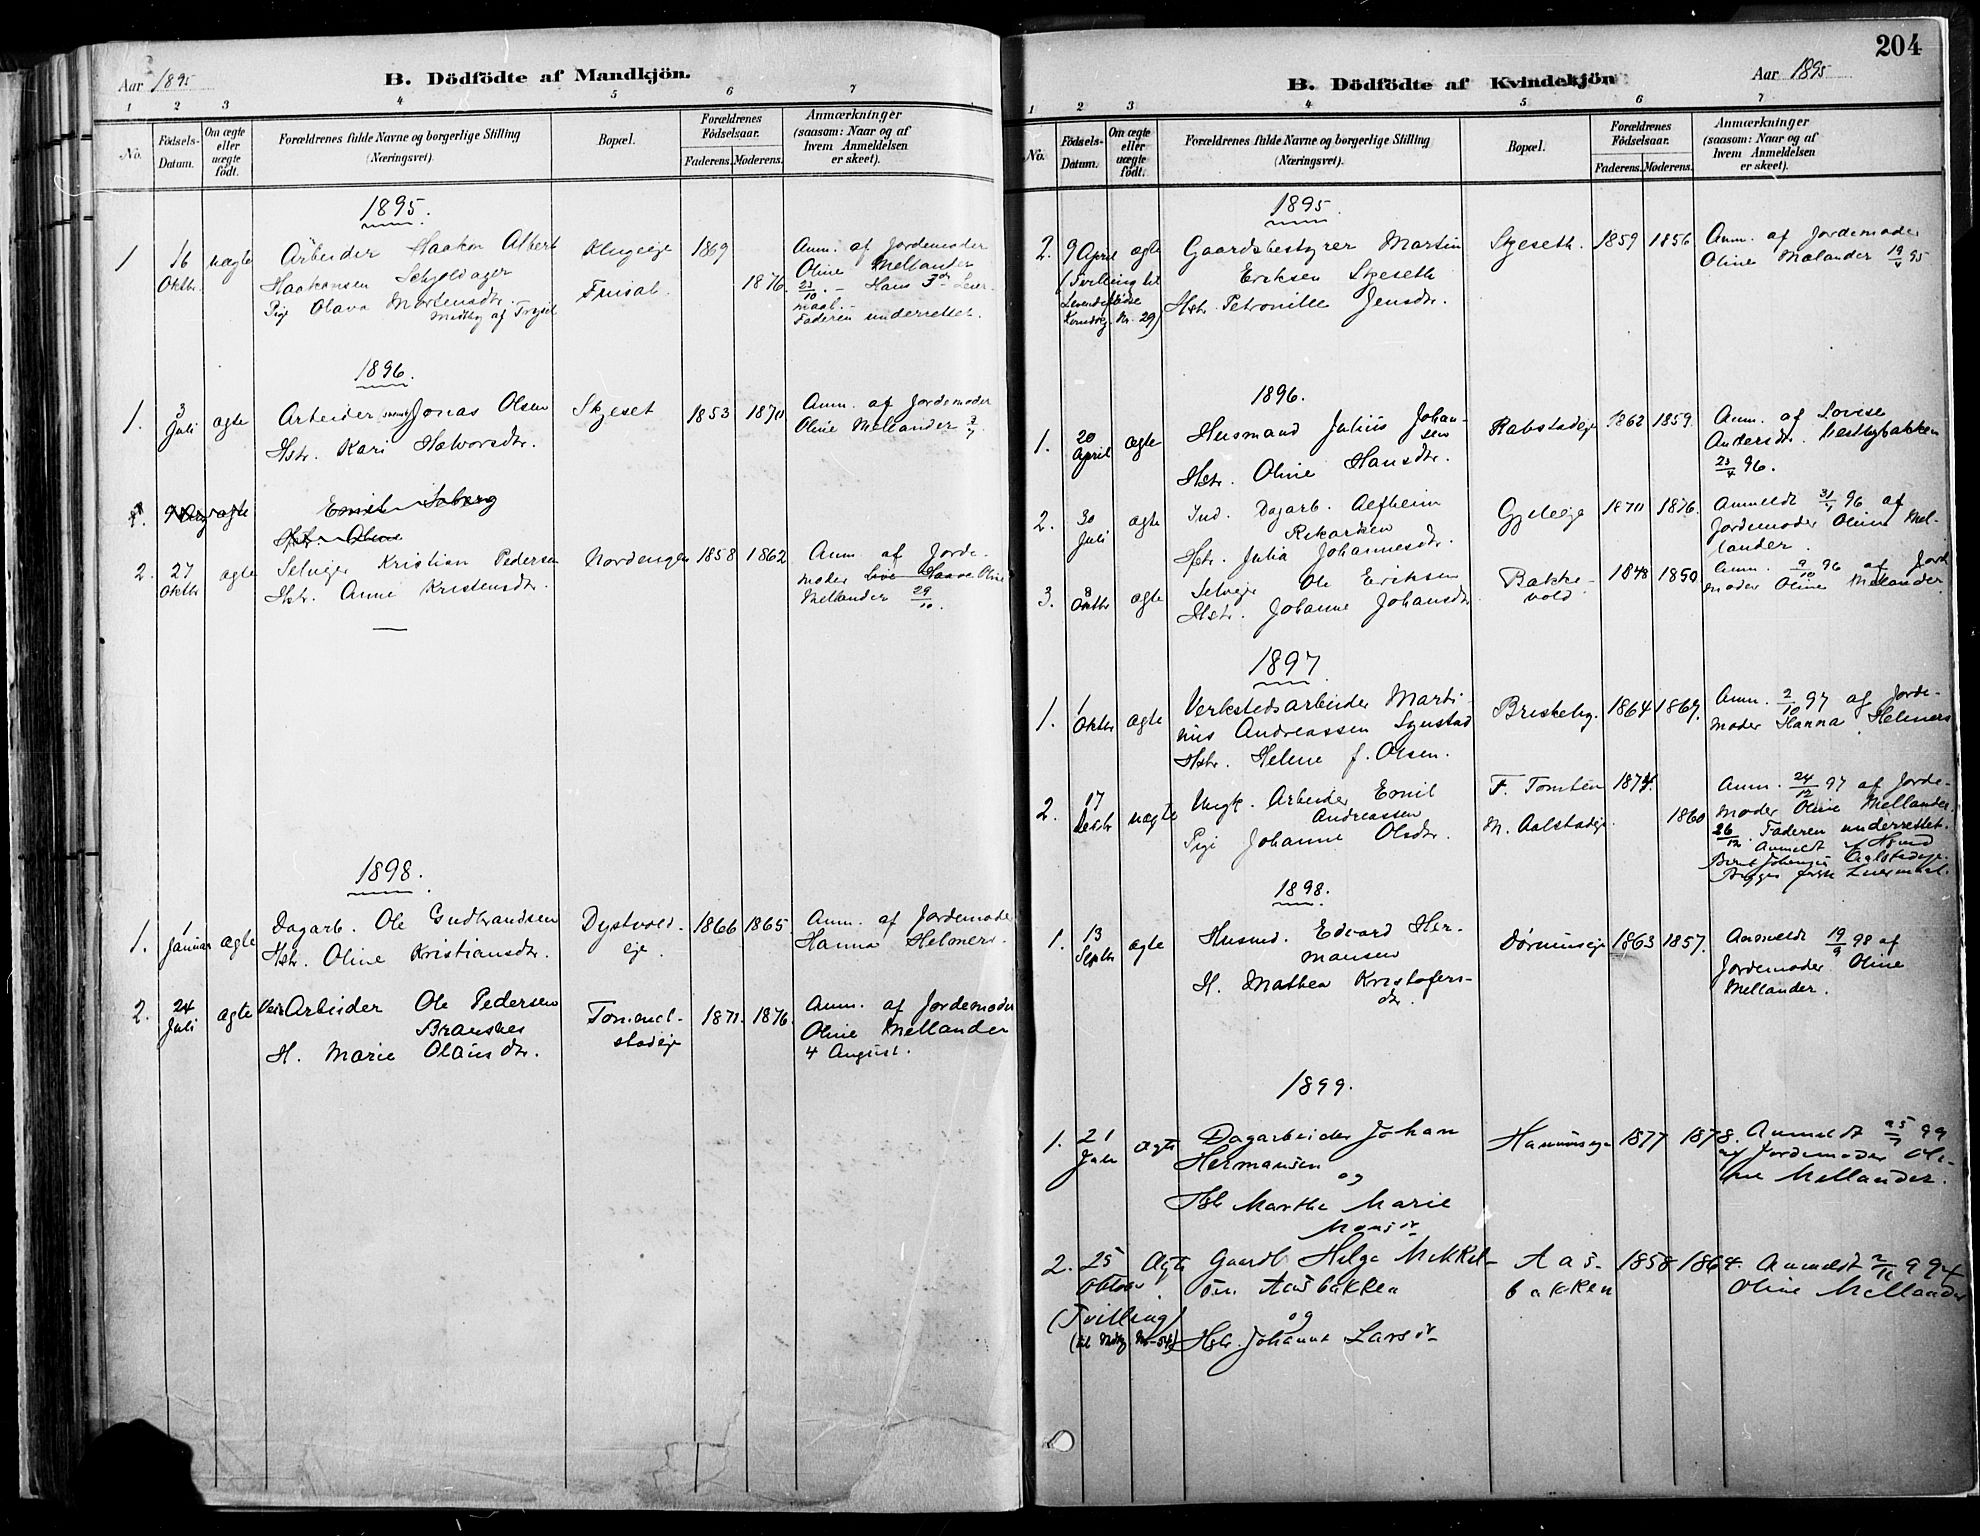 Aar 1895
B. Dödfödte af Mandkjön.
1 2 3 4 5 6 7
No.
Födsels-Datum.
Om ægte eller uægte födt.
Forældrenes fulde Navne og borgerlige Stilling (Næringsvei).
Bopæl.
Forældrenes Födselsaar.
Faderens. Moderens.
Anmærkninger (saasom: Naar og af hvem Anmeldelsen er skeet).
1895.
1 16 uægte Arbeider Haakon Albert 1869 Anm. af Jordemoder
Oktbr. Haakonsen Oline Mellander
Pige Olava Mortensdtr. Furusat. 1876. 23/10. - Hans 3die Leiermaal. -
af Trysil Faderen underrettet.
1896.
1. 3 Juli ægte Arbeider Jonas Olsen Skjeset 1853 1870 Anm. af Jordemoder
Hstr. Kari Halvorsdtr. Oline Mellander 3/7.
ægte Emil
Hstr. Oline
2. 27 Oktbr ægte Selveier Kristian Pedersen Nordengen 1858 1862 Anm. af Jorde-
Hstr. Anne Kristensdtr. moder Oline
Mellander 29/10.
1898.
1. 1 Januar ægte Dagarb. Ole Gudbrandsen Dystvold- 1866 1865 Anm. af Jordemoder
Hstr. Oline Kristiansdtr. eje. Hanna Helmers.
2. 24 Juli ægte Arbeider Ole Pedersen Tommel- 1871. 1876. Anm. af Jordemoder
Branskes stadeje Oline Mellander
H. Marie Olausdtr. 4 August.
204
B. Dödfödte af Kvindekjön
Aar 1895
1 2 3 4 5 6 7
No.
Födsels-Datum.
Om ægte eller uægte födt.
Forældrenes fulde Navne og borgerlige Stilling (Næringsvei).
Bopæl.
Forældrenes Födselsaar.
Faderens. Moderens.
Anmærkninger (saasom: Naar og af hvem Anmeldelsen er skeet).
1895.
2. 9 April ægte Gaardsbestyrer Martin 1859 1856 Anm. af Jordemoder
(Tvilling til Eriksen Oline Melander 19/4 95
Levendefødte Hstr. Petronille Jensdtr.
Kvindkj. Nr. 29)
1896.
1. 20 April ægte Husmand Julius Johan- Rabstadeje 1862 1859. Anm. af Lovise
sen Andersdtr. Vestbybakken
Hstr. Oline Hansdtr. 23/4 96.
2. 30 Juli ægte Ind. Dagarb. 1870 1876. Anmeldt 31/7 96 af
Jordemoder Oline Mel-
Hstr. Julia Johannesdtr. lander.
3. 8 Oktbr ægte Selveje Ole Eriksen Bakke- 1848 1850. Anm. 9/10 96 af Jord
Hstr. Johanne Johansdtr vold. moder Oline Melander.
1897
1. 1 Oktbr ægte Verkstedsarbeider Marti- Briskeby. 1864 1869. Anm. 2/10 97 af Jorde-
nus Andreassen moder Hanna Helmers
Hstr. Helene f. Olsen.
2. 17 Decbr uægte Ungk. Arbeider Emil F. Tomten 1874. Anm. 24/12 97 af Jorde-
Andreassen moder Oline Mellander.
Pige Johanne Olsdtr. M. Aalstadeje. 1860 26/12. Faderen underrettet.
Anmeldt af Hsmd
Bernt Johansen Aalstadeje.
Begges første Leiermaal.
1898.
1. 13 Septbr ægte Husmd. Edvard Her- 1863 1857. Anmeldt 19/9 98 af
mansen Jordemoder Oline
H. Mathea Kristofers- Mellander.
dtr.
1899.
1. 21 Juli Ægte Dagarbeider Johan 1877 1878. Anmeldt 25/7 99
Hermansen af Jordemoder Oli-
og ne Mellander.
Hstr Marthe Marie
2. 25 Oktober Ægte Gaardb Helge Mikkel- Aas- 1858 1864. Anmeldt 2/11 99
sen Aasbakken bakken Oline Mellander
(Tvilling) og
Hstr. Johanne Larsdr